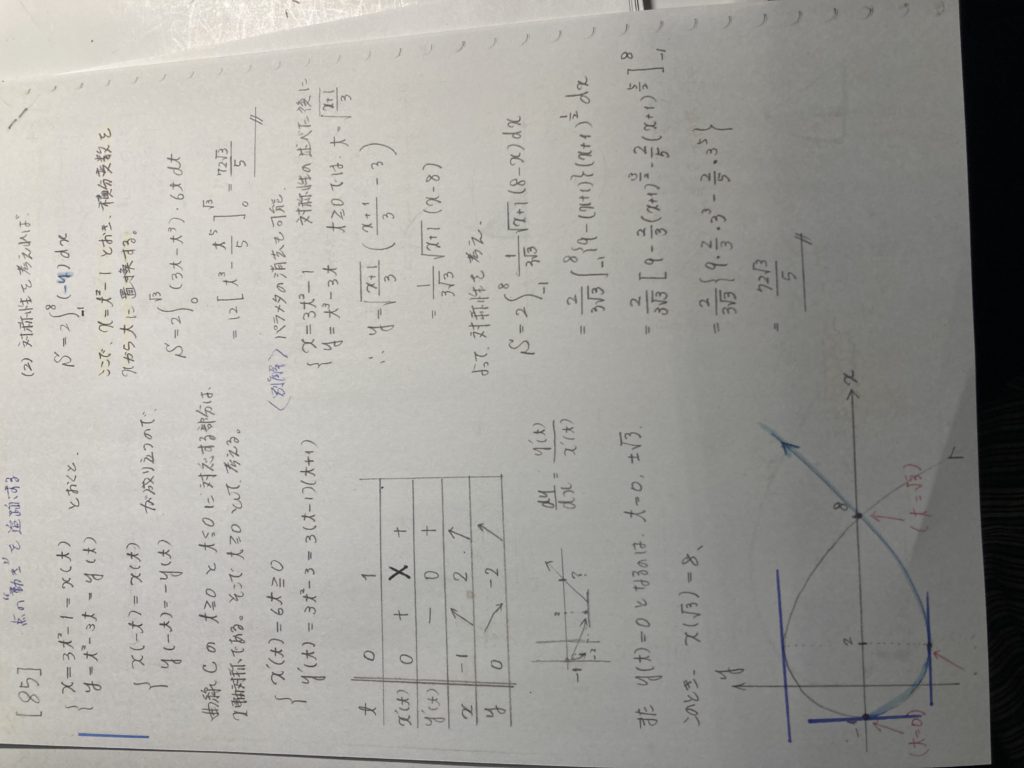 [85] 点の"動き"を追跡する
{ x=3t²-1=x(t)
y=t³-3t=y(t) とおくと、
{ x(-t)=x(t)
y(-t)=-y(t) が成り立つので、
曲線Cの t≧0 と t≦0 に対応する部分は
x軸対称である。そこで t≧0 として考える。
{ x'(t)=6t≧0
y'(t)=3t²-3=3(t-1)(t+1)
t 0 1
x'(t) 0 + X +
y'(t) - 0 +
x -1 ↗ 2 ↗
y 0 ↘ -2 ↗
-1 2 -2 ?
dy/dx = y'(t)/x'(t)
また y(t)=0 となるのは、t=0, ±√3.
このとき x(√3)=8、
y
-1 2 8 x
(t=0)
(t=√3)
(2) 対称性を考えれば
S=2∫₋₁⁸(-y)dx
ここで、x=3t²-1 とおき、積分変数を
xからtに置換する。
S=2∫₀^√3 (3t-t³)・6t dt
=12[t³-t⁵/5]₀^√3 = 72√3/5 //
〈別解〉パラメタの消去も可能.
{ x=3t²-1
y=t³-3t 対称性の述べた後に
t≧0では、t=√((x+1)/3)
∴ y=√((x+1)/3) ((x+1)/3 - 3)
= 1/(3√3) √(x+1) (x-8)
よって、対称性を考え、
S=2∫₋₁⁸ 1/(3√3) √(x+1) (8-x)dx
= 2/(3√3) ∫₋₁⁸ {9-(x+1)}(x+1)^(1/2) dx
= 2/(3√3) [9・2/3(x+1)^(3/2) - 2/5(x+1)^(5/2)]₋₁⁸
= 2/(3√3) {9・2/3・3³ - 2/5・3⁵}
= 72√3/5 //